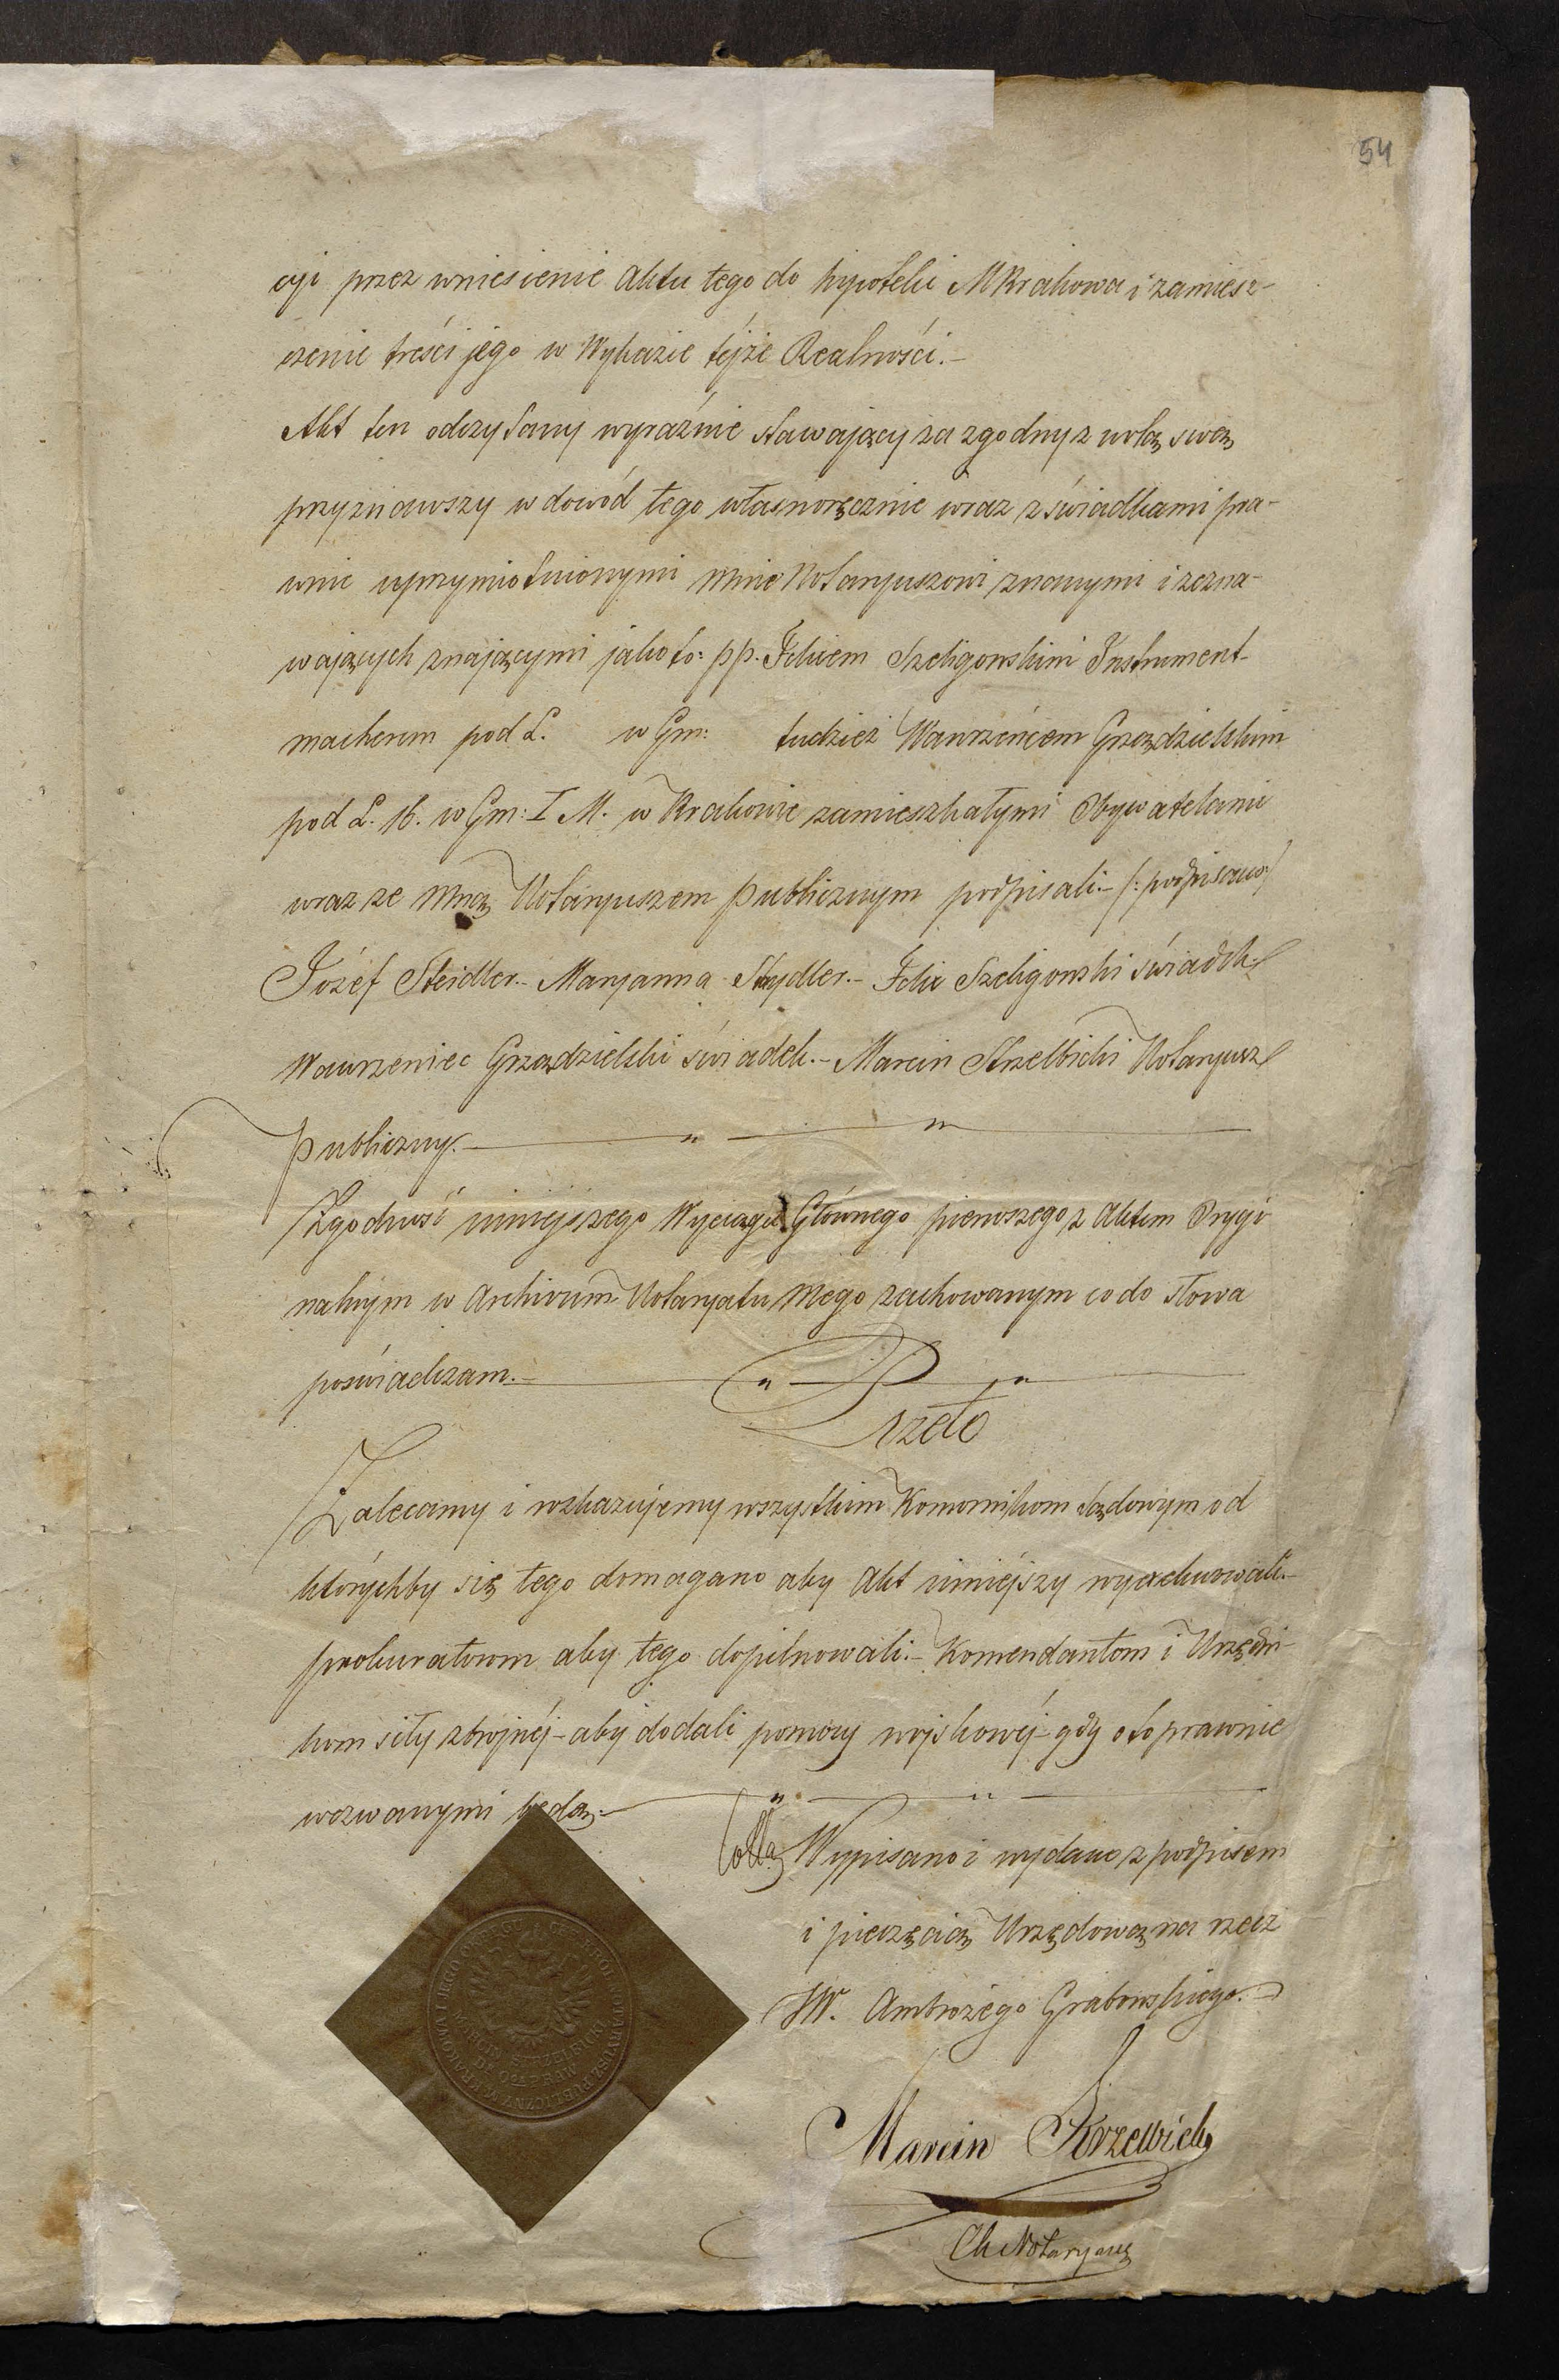 54
cyi przez wniesienie Aktu tego do hypoteki M Krakowa i zamiesz-
czenie treści jego w Wykazie téjże Realności.-
Akt ten odczytany wyraźnie stawający za zgodny z wolą swą
przyznawszy w dowód tego własnoręcznie wraz z świadkami pra-
wnie uprzymiotnionymi mnie Notaryuszowi znanymi i zezna-
wających znającymi jako to: pp. Felixem Szeligowskim Instrument-
macherem pod L. w Gm: tudzież Wawrzeńcem Grządzielskim
pod L. 16. w Gm: I M. w Krakowie zamieszkałymi Obywatelami
wraz ze mną Notaryuszem publicznym podpisali.- /: podpisano/
Józef Steidler.- Maryanna Stydler.- Felix Szeligowski świadek.
Wawrzeniec Grządzielski świadek.- Marcin Strzelbicki Notaryusz
publiczny.-
Zgodność niniejszego Wyciągu Głównego pierwszego z Aktem Orygi
nalnym w Archivum Notaryatu mego zachowanym co do słowa
poświadczam.-
Przeto
Zalecamy i rozkazujemy wszystkim Komornikom Sądowym od
którychby się tego domagano aby Akt niniéjszy wyexekwowali.-
prokuratorom aby tego dopilnowali.- Komendantom i Urzędni-
kom siły zbrojnéj - aby dodali pomocy wojskowéj - gdy o to prawnie
wezwanymi będą.-
Wypisano i wydano z podpisem
i pieczęcią Urzędową na rzecz
JW. Ambrożego Grabowskiego.
NOTARIUSZ PUBLICZNY M. KRAKOWA I JEGO OKRĘGU
MARCIN STRZELBICKI
Marcin Strzelbicki
Notaryusz